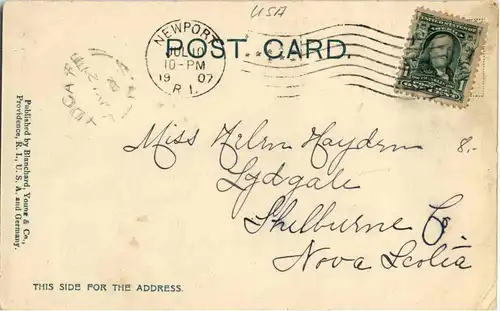 USA
POST CARD.
NEWPORT
JUL 10
10-PM
1907
R.I.
Miss Helen Hayden 8.-
Lydgale
Shelburne Co.
Nova Scotia
Published by Blanchard, Young & Co.,
Providence, R. I., U. S. A. and Germany.
THIS SIDE FOR THE ADDRESS.